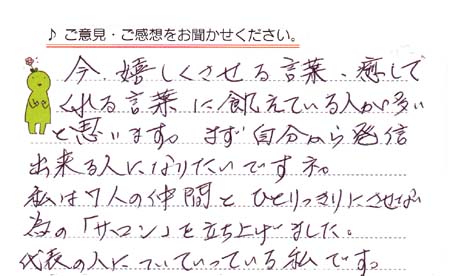 ♪ ご意見・ご感想をお聞かせください。
今、嬉しくさせる言葉、癒して
くれる言葉に飢えている人が多い
と思います。まず自分から発信
出来る人になりたいですネ。
私は7人の仲間と ひとりっきりにさせない
為の「サロン」を立ち上げました。
代表の人についていっている私です。